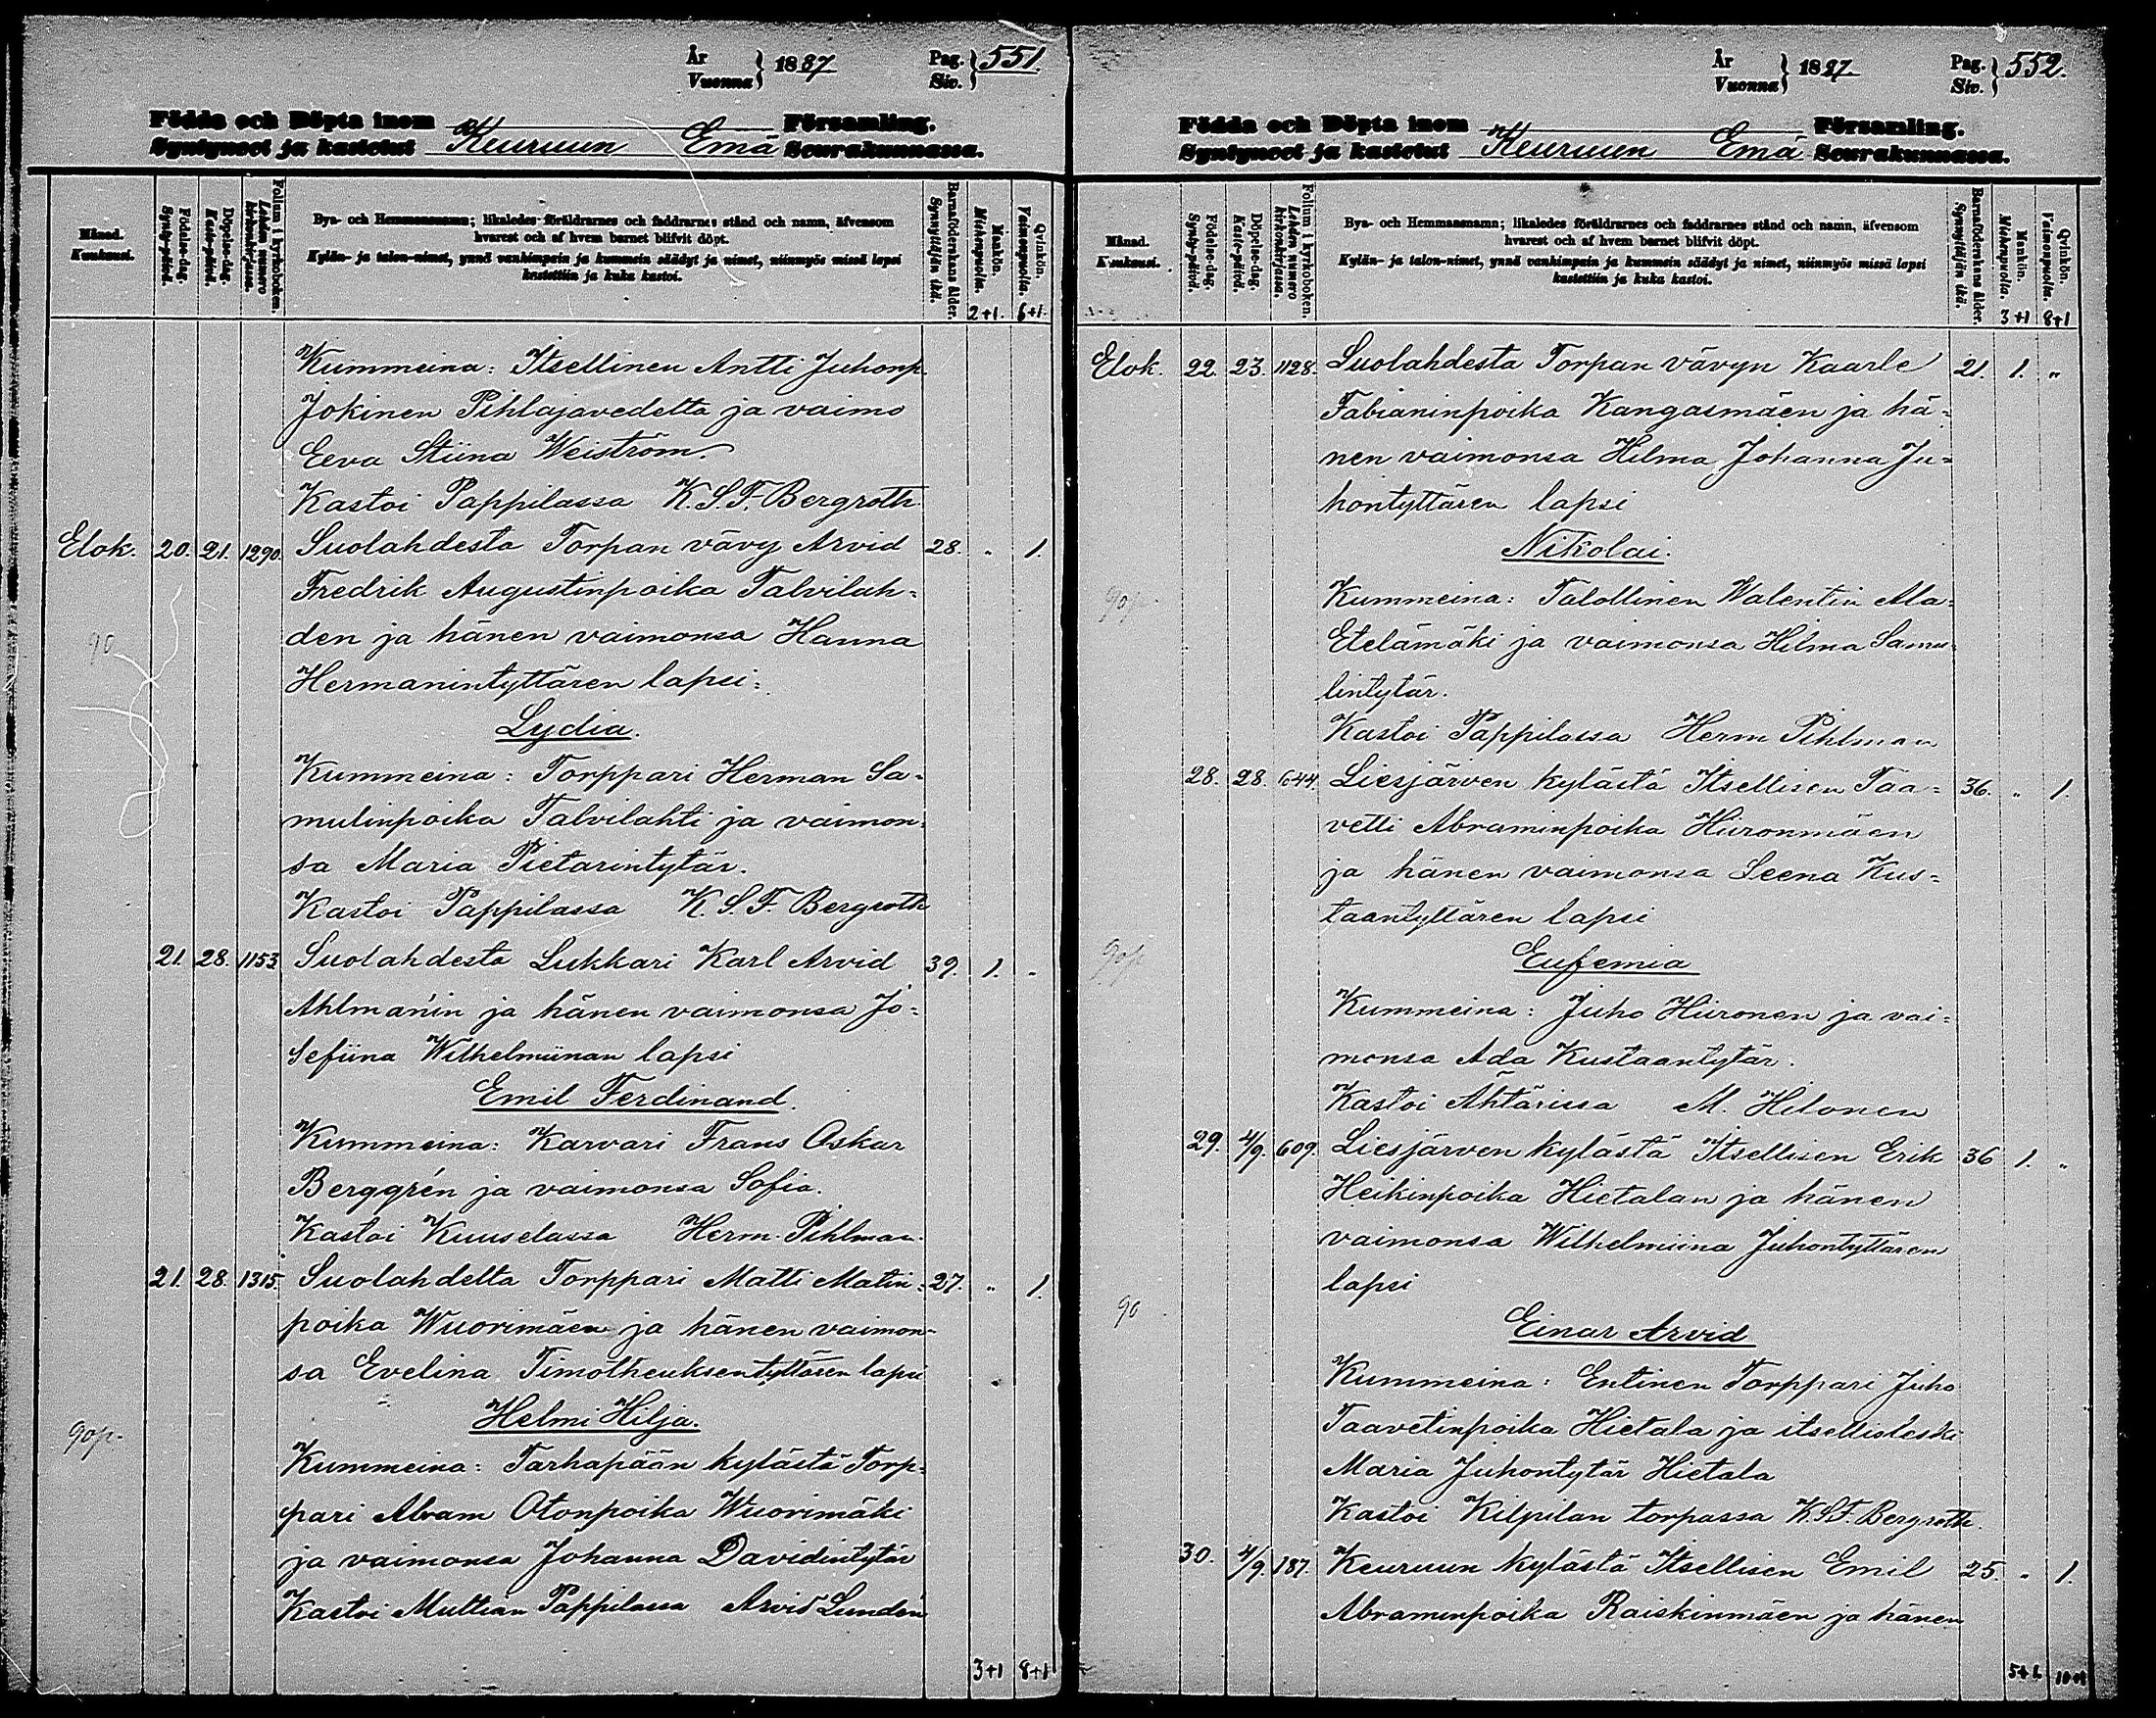 År
Vuonna } 1887.
Pag.
Siv. } 551.
Födda och Döpta inom Församling.
Syntyneet ja kastetut Keuruun Emä Seurakunnassa.
Månad.
Kuukausi.
Födelse-dag.
Synty-päivä.
Döpelse-dag.
Kaste-päivä.
Folium i kyrkoboken.
Lehden numero
kirkonkirjassa.
Bya- och Hemmansnamn; likaledes föräldrarnes och faddrarnes stånd och namn, äfvensom
hvarest och af hvem barnet blifvit döpt.
Kylän- ja talon-nimet, ynnä vanhimpain ja kummein säädyt ja nimet, niinmyös missä lapsi
kastettiin ja kuka kastoi.
Barnaföderskans ålder.
Synnyttäjän ikä.
Mankön.
Miehenpuolta.
Qvinkön.
Vaimonpuolta.
2+1. 6+1.
Kummeina: Itsellinen Antti Juhonp.
Jokinen Pihlajavedeltä ja vaimo
Eeva Stiina Weiström.
Kastoi Pappilassa K.S.F. Bergroth.
Elok. 20. 21. 1290. Suolahdesta Torpan vävy Arvid 28. " 1.
Fredrik Augustinpoika Talvilah=
den ja hänen vaimonsa Hanna
90
Hermanintyttären lapsi:
Lydia.
Kummeina: Torppari Herman Sa=
mulinpoika Talvilahti ja vaimon=
sa Maria Pietarintytär.
Kastoi Pappilassa K.S.F. Bergroth
21. 28. 1153. Suolahdesta Lukkari Karl Arvid 39. 1. "
Ahlman'in ja hänen vaimonsa Jo=
sefiina Wilhelmiinan lapsi
Emil Ferdinand.
Kummeina: Karvari Frans Oskar
Berggrén ja vaimonsa Sofia.
Kastoi Kuuselassa Herm. Pihlman.
21. 28. 1315. Suolahdelta Torppari Matti Matin= 27. " 1.
poika Wuorimäen ja hänen vaimon=
sa Evelina Timotheuksentyttären lapsi
Helmi Hilja.
90p.
Kummeina: Tarhapään kylästä Torp=
pari Abram Otonpoika Wuorimäki
ja vaimonsa Johanna Davidintytär
Kastoi Multian Pappilassa Arvid Lundén
3+1 8+1
År
Vuonna } 1887.
Pag.
Siv. } 552.
Födda och Döpta inom Församling.
Syntyneet ja kastetut Keuruun Emä Seurakunnassa.
Månad.
Kuukausi.
Födelse-dag.
Synty-päivä.
Döpelse-dag.
Kaste-päivä.
Folium i kyrkoboken.
Lehden numero
kirkonkirjassa.
Bya- och Hemmansnamn; likaledes föräldrarnes och faddrarnes stånd och namn, äfvensom
hvarest och af hvem barnet blifvit döpt.
Kylän- ja talon-nimet, ynnä vanhimpain ja kummein säädyt ja nimet, niinmyös missä lapsi
kastettiin ja kuka kastoi.
Barnaföderskans ålder.
Synnyttäjän ikä.
Mankön.
Miehenpuolta.
Qvinkön.
Vaimonpuolta.
3+1 8+1
Elok. 22. 23. 1128. Suolahdesta Torpan vävyn Kaarle 21. 1. "
Fabianinpoika Kangasmäen ja hä=
nen vaimonsa Hilma Johanna Ju=
hontyttären lapsi
Nikolai.
90p.
Kummeina: Talollinen Walentin Ala=
Etelämäki ja vaimonsa Hilma Samu
lintytär.
Kastoi Pappilassa Herm Pihlman
28. 28. 644. Liesjärven kylästä Itsellisen Taa= 36. " 1.
vetti Abraminpoika Hiironmäen
ja hänen vaimonsa Leena Kus=
taantyttären lapsi
90p
Eufemia
Kummeina: Juho Hiironen ja vai=
monsa Ada Kustaantytär.
Kastoi Ähtärissä M. Hilonen
29. 4/9. 609. Liesjärven kylästä Itsellisen Erik 36 1. "
Heikinpoika Hietalan ja hänen
vaimonsa Wilhelmiina Juhontyttären
lapsi
90
Einar Arvid
Kummeina: Entinen Torppari Juho
Taavetinpoika Hietala ja itsellisleski
Maria Juhontytär Hietala
Kastoi Kilpilan torpassa K.S.F. Bergroth.
30. 4/9. 187. Keuruun kylästä Itsellisen Emil 25. " 1.
Abraminpoika Raiskinmäen ja hänen
5+1